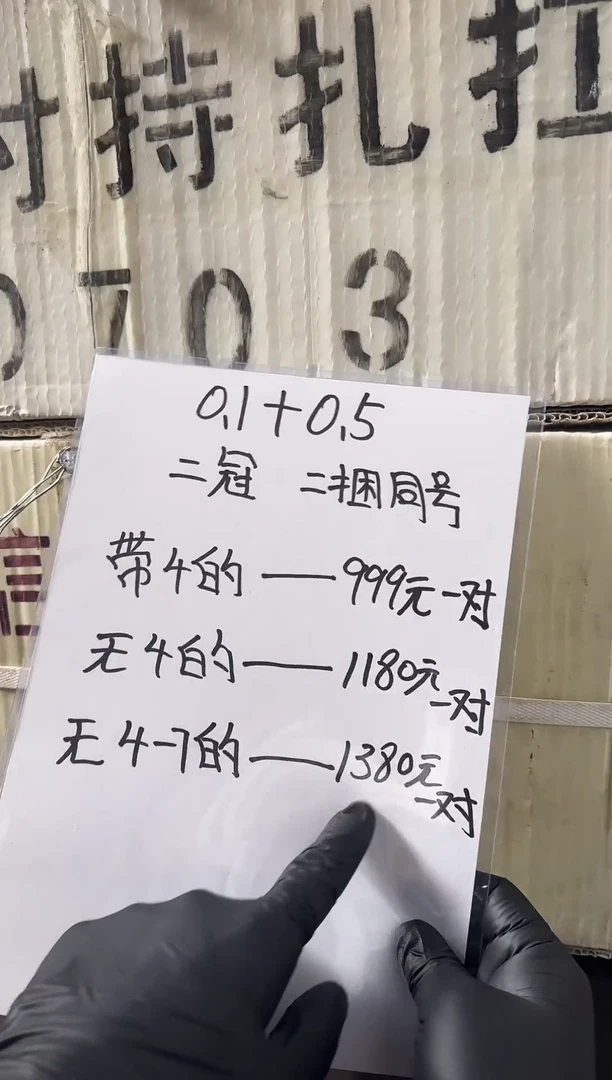 对持扎拉
0703
0.1+0.5
二冠 二捆同号
带4的——999元一对
无4的——1180元一对
无4-7的——1380元一对
信